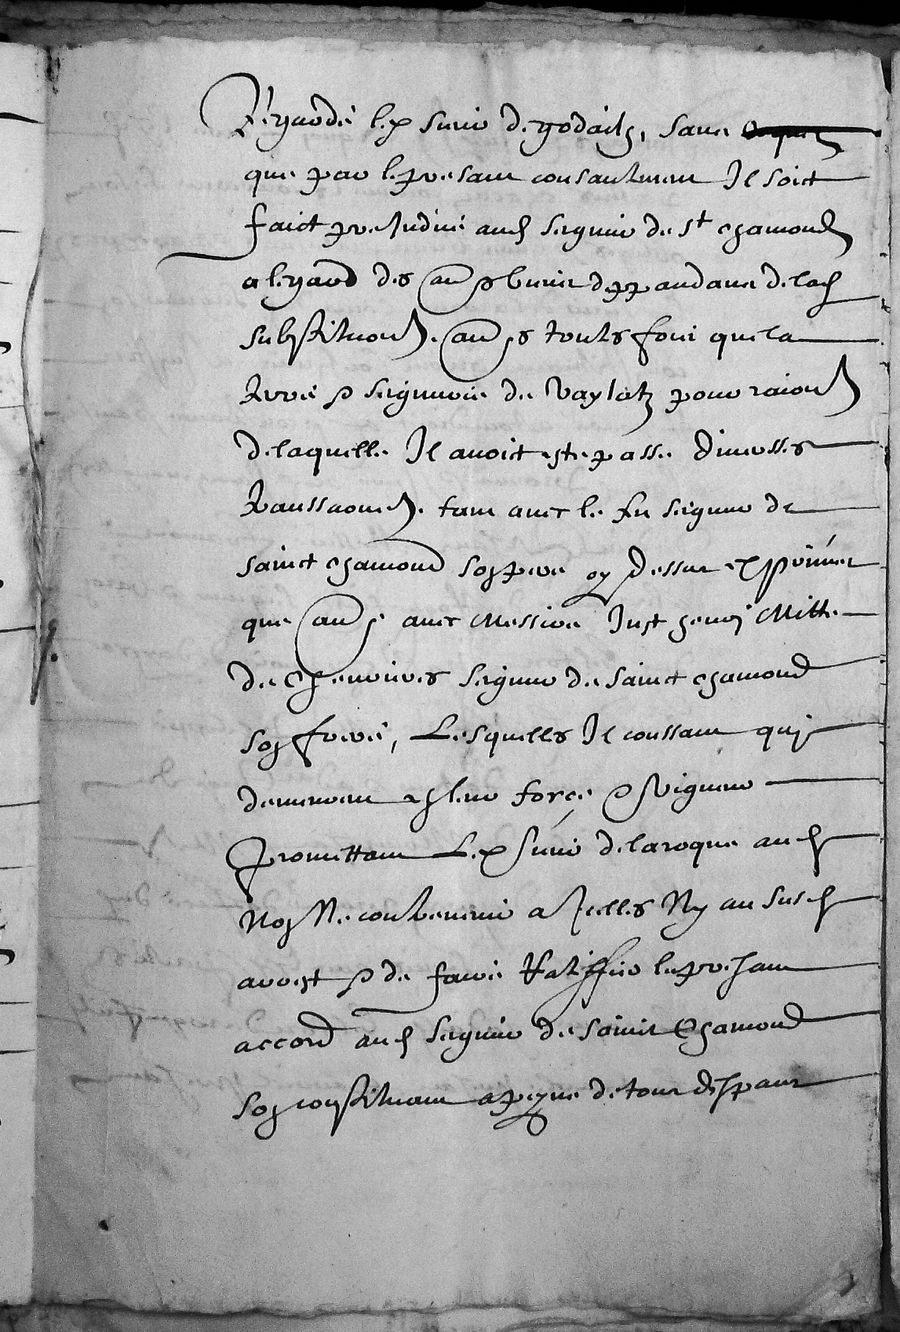 Regarde le sieur de godailh, sans
que par le presant consantement Il soict
faict prejudice aud seigneur de st chamond
a legard des au biens deppandans de lad
substitution. touts foix que la
terre seigneurie de Vaylatz pour raison
de laquelle Il avoict este passe diversses
transsactions. tant avec le fu seigneur de
sainct chamond son pere cy dessus exprimer
que avec Messire Just henri Mitte
de chevrieres seigneur de sainct chamond
son frere, Lesquelles Il conssant quy
demeurent en leur force vigueur
promettant Le sieur de laroque aud
Non Ne contrevenir a Icelles Ny au susd
arrest de faire Ratiffier le presant
accord aud seigneur de sainct Chamond
son constituant a peyne de tous despans